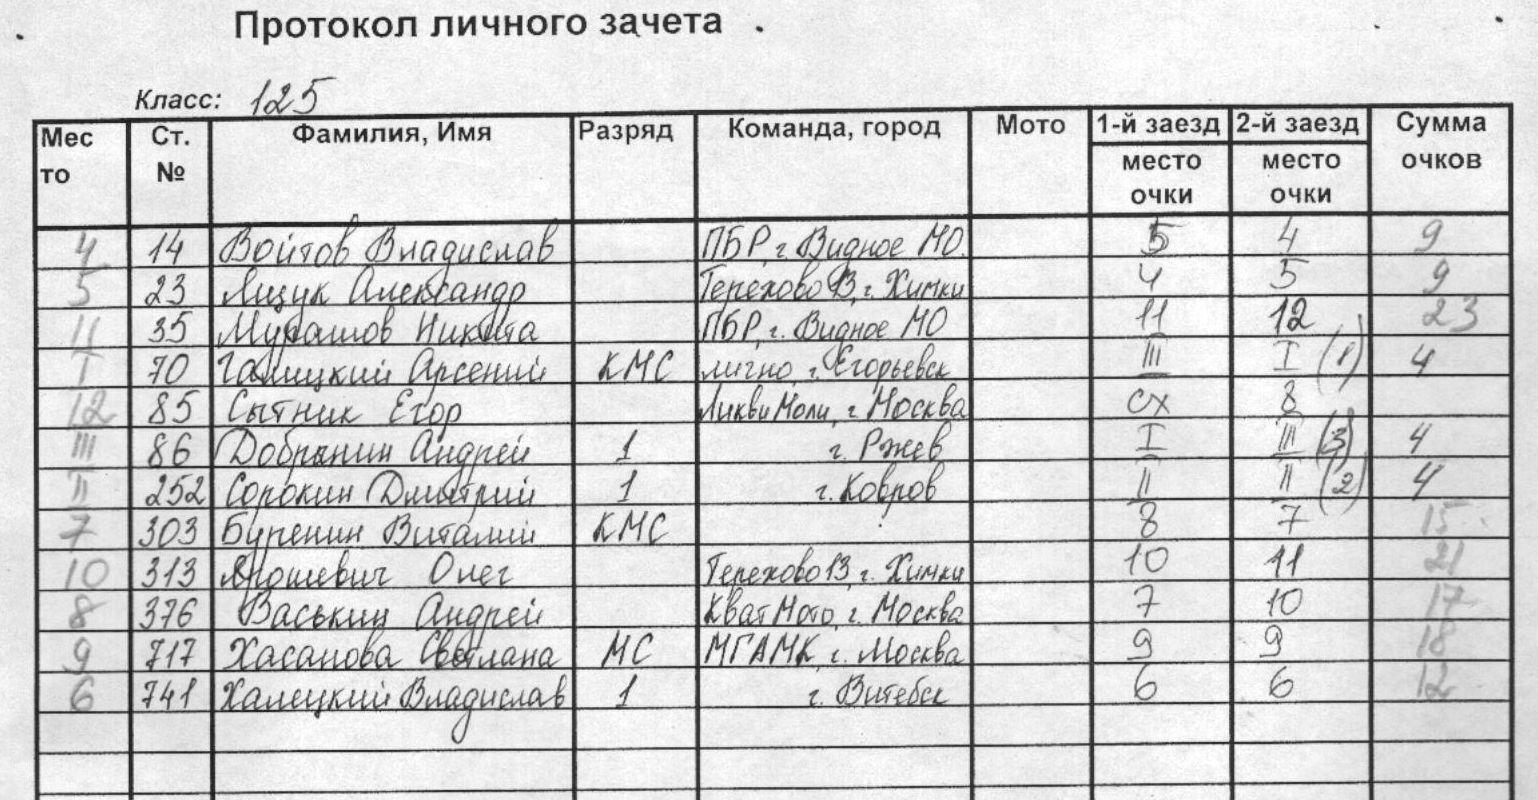 Протокол личного зачета
Класс: 125
Место Ст. № Фамилия, Имя Разряд Команда, город Мото 1-й заезд место очки 2-й заезд место очки Сумма очков
4 14 Войтов Владислав ПБР, г. Видное МО. 5 4 9
5 23 Ящук Александр Терехово 13, г. Химки 4 5 9
11 35 Мурашов Никита ПБР, г. Видное МО 11 12 23
I 70 Галицкий Арсений КМС лично, г. Егорьевск III I (1) 4
12 85 Сытник Егор Ликви Моли, г. Москва сх 8
III 86 Добрынин Андрей 1 г. Ржев I III (3) 4
II 252 Сорокин Дмитрий 1 г. Ковров II II (2) 4
7 303 Буренин Виталий КМС 8 7 15
10 313 Ярошевич Олег Терехово 13, г. Химки 10 11 21
8 376 Васькин Андрей Кват Мото, г. Москва 7 10 17
9 717 Хасанова Светлана МС МГАМК, г. Москва 9 9 18
6 741 Халецкий Владислав 1 г. Витебск 6 6 12